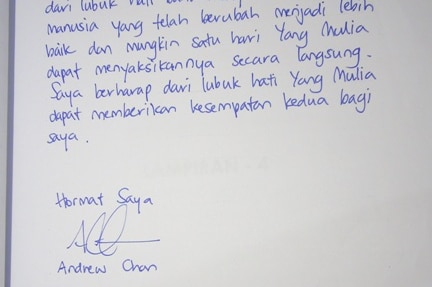 dari lubuk hati
manusia yang telah berubah menjadi lebih
baik dan mungkin satu hari Yang Mulia
dapat menyaksikannya secara langsung.
Saya berharap dari lubuk hati Yang Mulia
dapat memberikan kesempatan kedua bagi
saya.
Hormat Saya
Andrew Chan